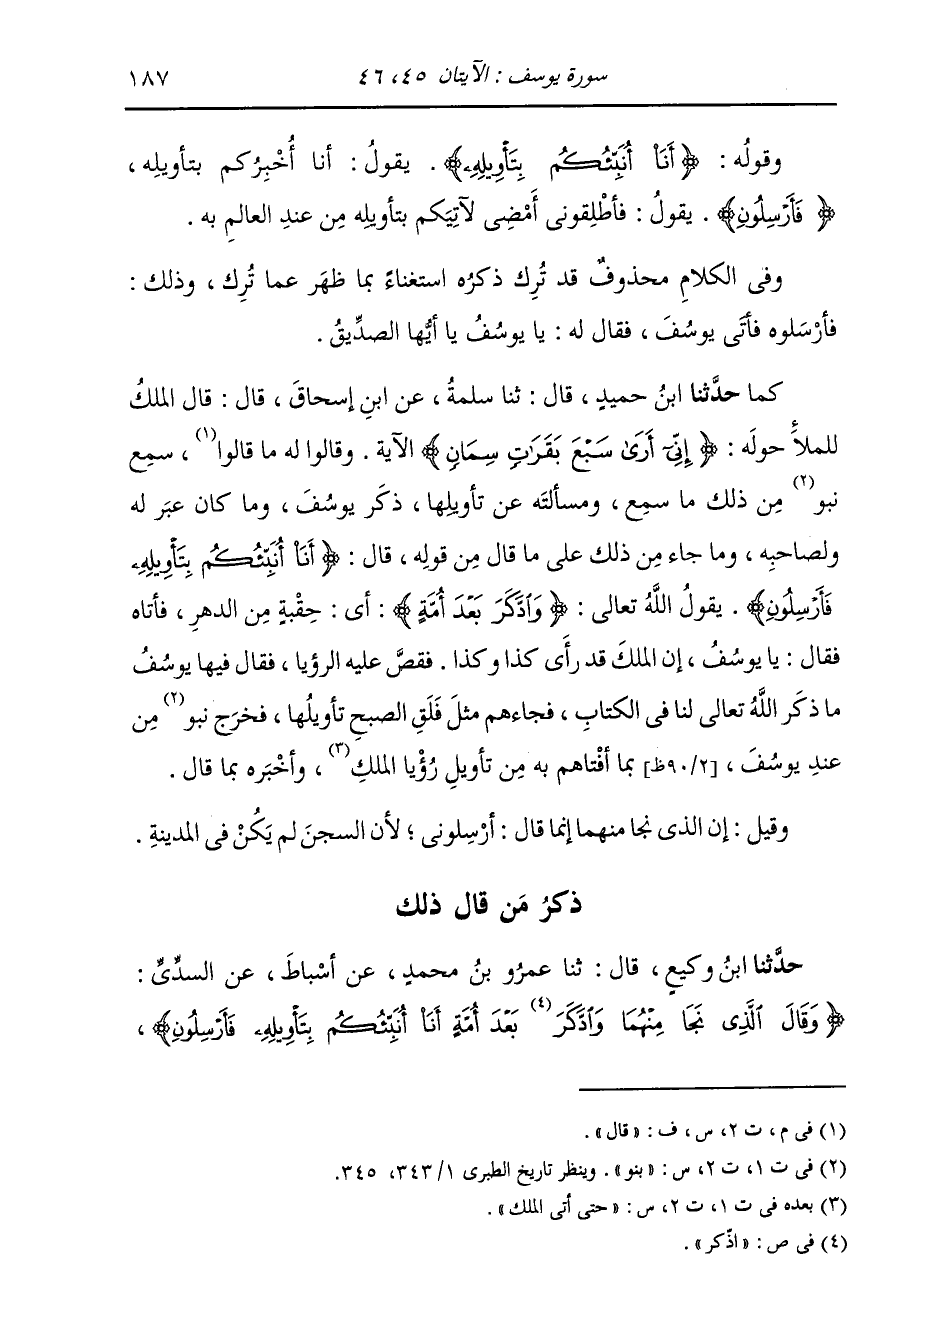 سورة يوسف : الآيتان ٤٥، ٤٦ ١٨٧
وقولُه : ﴿ أَنَا۠ أُنَبِّئُكُم بِتَأْوِيلِهِۦ ﴾ . يقولُ : أنا أُخْبِرُكم بتأويلِه ،
﴿ فَأَرْسِلُونِ ﴾ . يقولُ : فأَطْلِقونى أَمْضِى لآتِيَكم بتأويلِه مِن عندِ العالمِ به .
وفى الكلامِ محذوفٌ قد تُرِك ذكرُه استغناءً بما ظهَر عما تُرِك ، وذلك :
فأرْسَلوه فأتَى يوسُفَ ، فقال له : يا يوسُفُ يا أيُّها الصدِّيقُ .
كما حدَّثنا ابنُ حميدٍ ، قال : ثنا سلمةُ ، عن ابنِ إسحاقَ ، قال : قال الملكُ
للملأَ حولَه : ﴿ إِنِّىٓ أَرَىٰ سَبْعَ بَقَرَٰتٍ سِمَانٍ ﴾ الآية . وقالوا له ما قالوا(١) ، سمِع
نبو(٢) مِن ذلك ما سمِع ، ومسألتَه عن تأويلِها ، ذكَر يوسُفَ ، وما كان عبَر له
ولصاحبِه ، وما جاء مِن ذلك على ما قال مِن قولِه ، قال : ﴿ أَنَا۠ أُنَبِّئُكُم بِتَأْوِيلِهِۦ
فَأَرْسِلُونِ ﴾ . يقولُ اللَّهُ تعالى : ﴿ وَٱدَّكَرَ بَعْدَ أُمَّةٍ ﴾ : أى : حِقْبةٍ مِن الدهرِ ، فأتاه
فقال : يا يوسُفُ ، إن الملكَ قد رأَى كذا وكذا . فقصَّ عليه الرؤيا ، فقال فيها يوسُفُ
ما ذكَر اللَّهُ تعالى لنا فى الكتابِ ، فجاءهم مثلَ فَلَقِ الصبحِ تأويلُها ، فخرَج نبو(٢) مِن
عندِ يوسُفَ ، [٩٠/٢ظ] بما أفْتاهم به مِن تأويلِ رُؤْيا الملكِ(٣) ، وأخْبَره بما قال .
وقيل : إن الذى نجا منهما إنما قال : أرْسِلونى ؛ لأن السجنَ لم يَكُنْ فى المدينةِ .
ذكرُ مَن قال ذلك
حدَّثنا ابنُ وكيعٍ ، قال : ثنا عمرُو بنُ محمدٍ ، عن أسْباطَ ، عن السدِّىِّ :
﴿ وَقَالَ ٱلَّذِى نَجَا مِنْهُمَا وَٱدَّكَرَ(٤) بَعْدَ أُمَّةٍ أَنَا۠ أُنَبِّئُكُم بِتَأْوِيلِهِۦ فَأَرْسِلُونِ ﴾ ،
(١) فى م ، ت ٢، س ، ف : « قال » .
(٢) فى ت ١، ت ٢، س : « بنو » . وينظر تاريخ الطبرى ٣٤٣/١، ٣٤٥.
(٣) بعده فى ت ١، ت ٢، س : « حتى أتى الملك » .
(٤) فى ص : « اذّكر » .